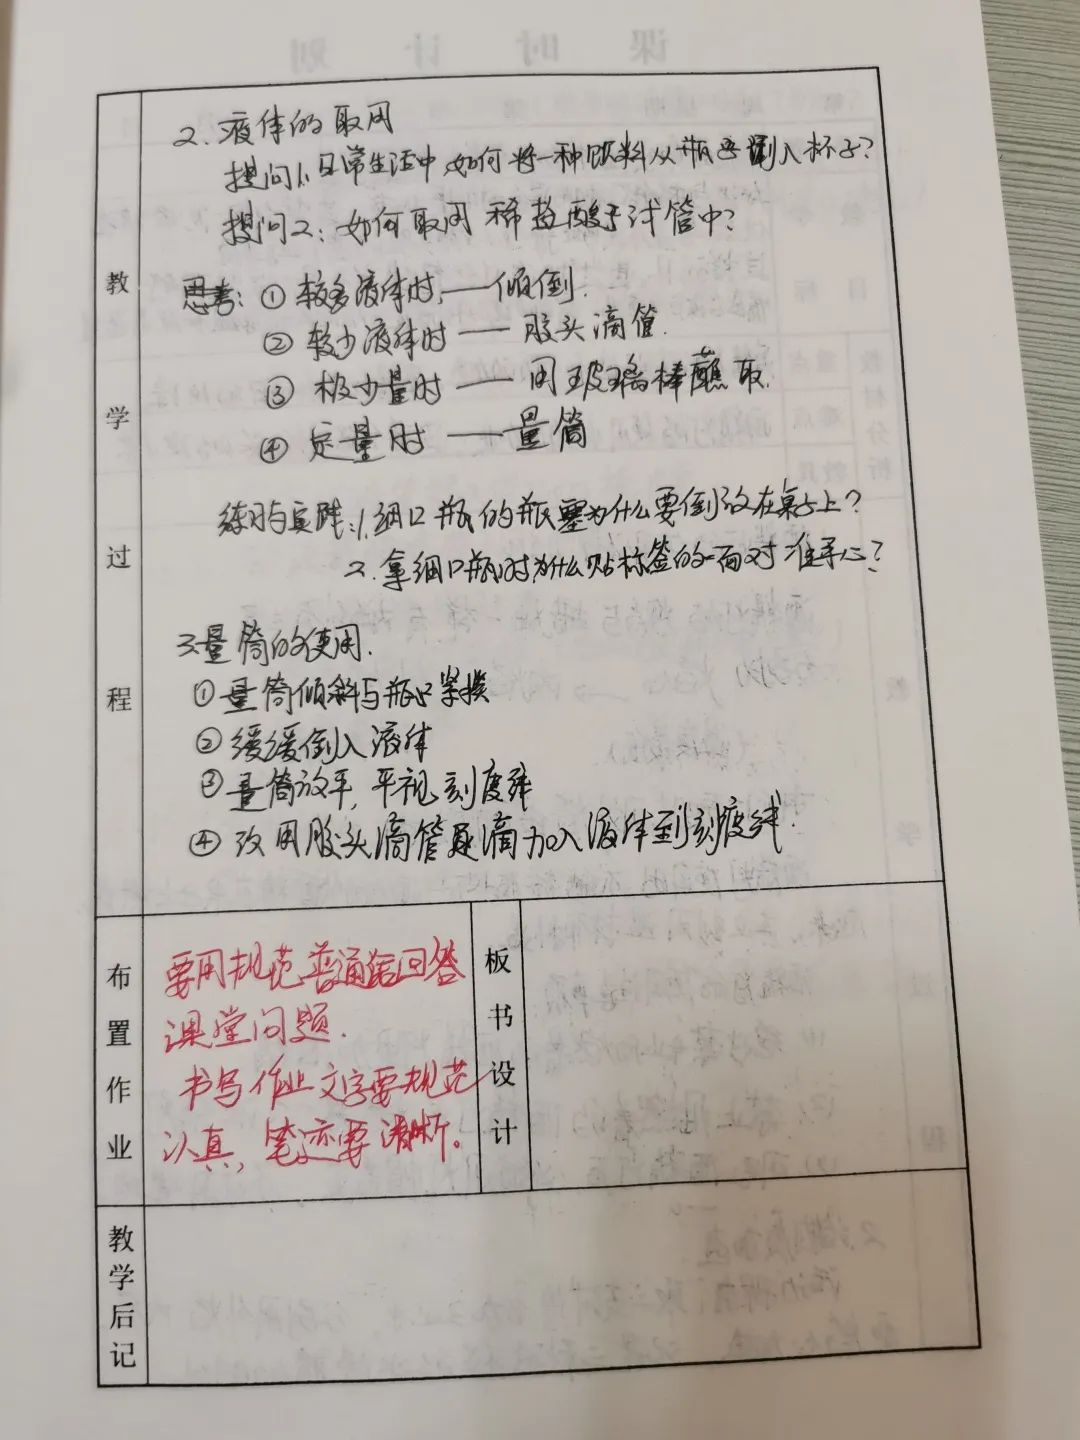 课时计划
教学过程
2.液体的取用
提问1:日常生活中如何将一种饮料从瓶子倒入杯子?
提问2:如何取用稀盐酸于试管中?
思考:①较多液体时,——倾倒.
②较少液体时——胶头滴管.
③极少量时——用玻璃棒蘸取.
④定量时——量筒
练习与实践:1.细口瓶的瓶塞为什么要倒放在桌子上?
2.拿细口瓶时为什么贴标签的一面对准手心?
3.量筒的使用.
①量筒倾斜与瓶口紧挨
②缓缓倒入液体
③量筒放平,平视刻度线
④改用胶头滴管逐滴加入液体到刻度线.
布置作业
要用规范普通话回答
课堂问题.
书写作业文字要规范
认真,笔迹要清晰。
板书设计
教学后记